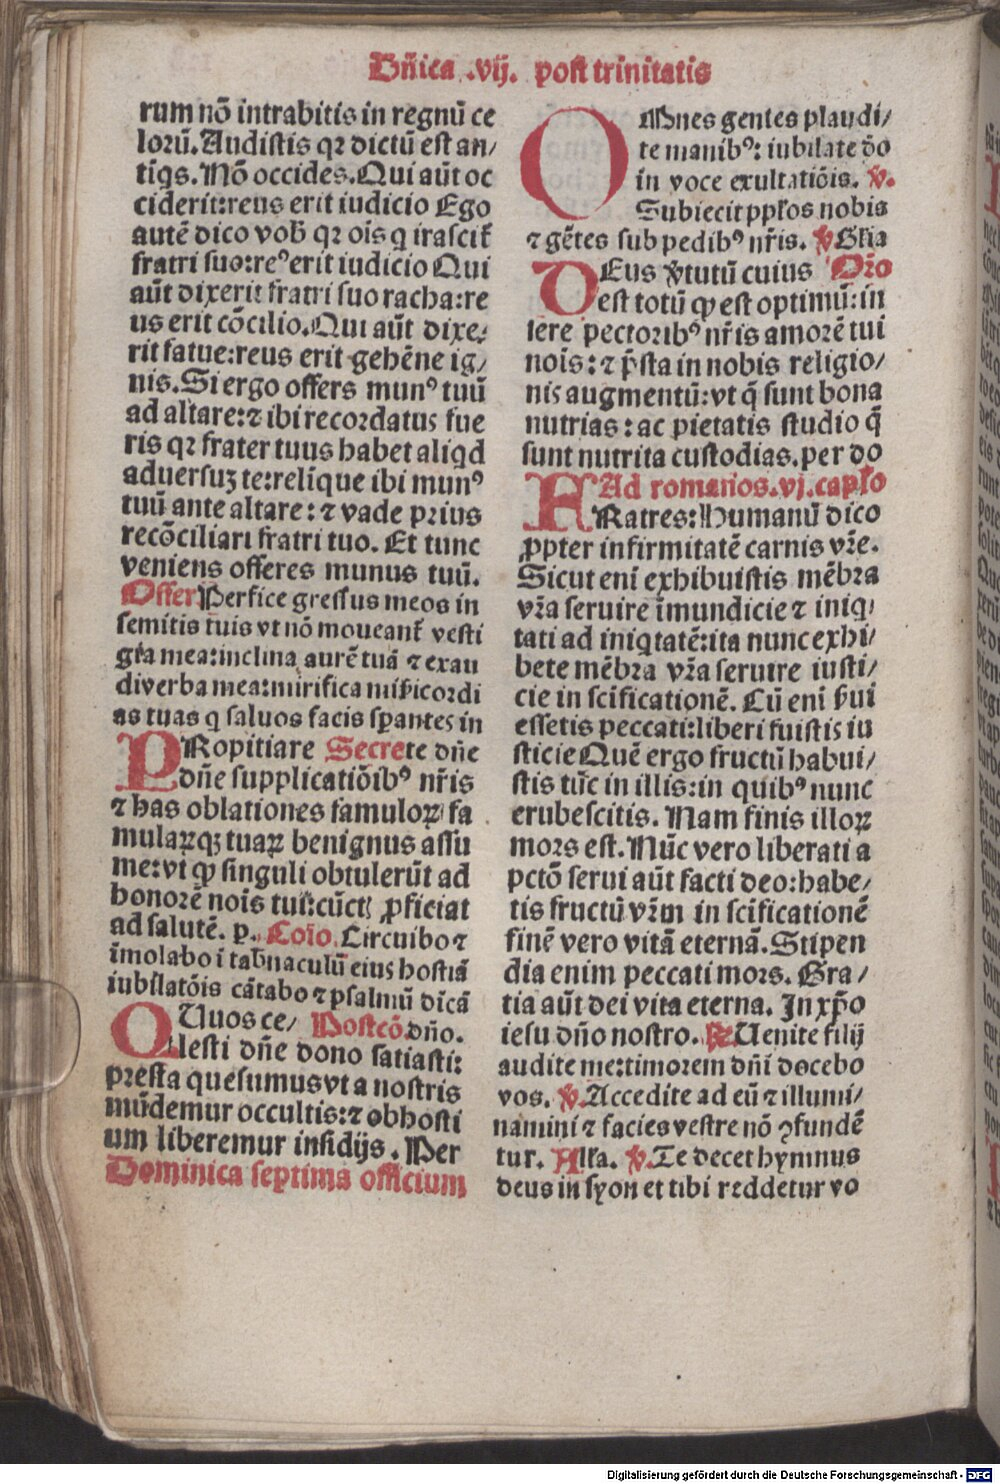 Dñica .vij. post trinitatis
rum nō intrabitis in regnū ce
lorū. Audistis qꝛ dictū est an/
tiqs. Nō occides. Qui aūt oc
ciderit: reus erit iudicio Ego
autē dico vob̄ qꝛ oīs q irascit̄
fratri suo: reꝰ erit iudicio Qui
aūt dixerit fratri suo racha: re
us erit cōcilio. Qui aūt dixe/
rit fatue: reus erit gehēne ig/
nis. Si ergo offers munꝰ tuū
ad altare: ⁊ ibi recordatus fue
ris qꝛ frater tuus habet aliqd
aduersuꝫ te: relīque ibi munꝰ
tuū ante altare: ⁊ vade prius
recōciliari fratri tuo. Et tunc
veniens offeres munus tuū.
Offer Perfice gressus meos in
semitis tuis vt nō moueant̄ vesti
gia mea: inclina aurē tuā ⁊ exau
di verba mea: mirifica mīsicordi
as tuas q saluos facis spantes in
PRopitiare Secrete dñe
dñe supplicatiōibꝰ nr̄is
⁊ has oblationes famuloꝝ fa
mulaꝝqꝫ tuaꝝ benignus assu
me: vt ꝙ singuli obtulerūt ad
honorē nois tui: cūctꝭ ꝓficiat
ad salutē. p. Cōio. Circuibo ⁊
īmolabo ī tab̄naculū eius hostiā
iubilatōis cātabo ⁊ psalmū dicā
QUos ce/ Postcō dño.
lesti dñe dono satiasti:
presta quesumus vt a nostris
mūdemur occultis: ⁊ ob hosti
um liberemur insidijs. Per
Dominica septima officium
OMnes gentes plaudi/
te manibꝰ: iubilate dō
in voce exultatiōis. ℣.
Subiecit pp̄los nobis
⁊ gētes sub pedibꝰ nr̄is. ℣ Gl̄ia
DEus ṽtutū cuius Or̄o
est totū ꝙ est optimū: in
sere pectoribꝰ nr̄is amorē tui
nois: ⁊ p̄sta in nobis religio/
nis augmentū: vt q̄ sunt bona
nutrias: ac pietatis studio q̄
sunt nutrita custodias. per do
Ad romanos. vj. capl̄o
FRatres: Humanū dico
ꝓpter infirmitatē carnis vr̄e.
Sicut enī exhibuistis mēbra
vr̄a seruire īmundicie ⁊ iniq/
tati ad iniqtatē: ita nunc exhi/
bete mēbra vr̄a seruire iusti/
cie in scificationē. Cū enī s̄ui
essetis peccati: liberi fuistis iu
sticie Quē ergo fructū habui/
stis tūc in illis: in quibꝰ nunc
erubescitis. Nam finis illoꝝ
mors est. Nūc vero liberati a
pctō serui aūt facti deo: habe/
tis fructū vr̄m in scificationē
finē vero vitā eternā. Stipen
dia enim peccati mors. Gra/
tia aūt dei vita eterna. In xp̄o
iesu dño nostro. ℟ Uenite filij
audite me: timorem dñi docebo
vos. ℣. Accedite ad eū ⁊ illumi/
namini ⁊ facies vestre nō ꝯfundē
tur. All̄a. ℣. Te decet hymnus
deus in syon et tibi reddetur vo
Digitalisierung gefördert durch die Deutsche Forschungsgemeinschaft - DFG